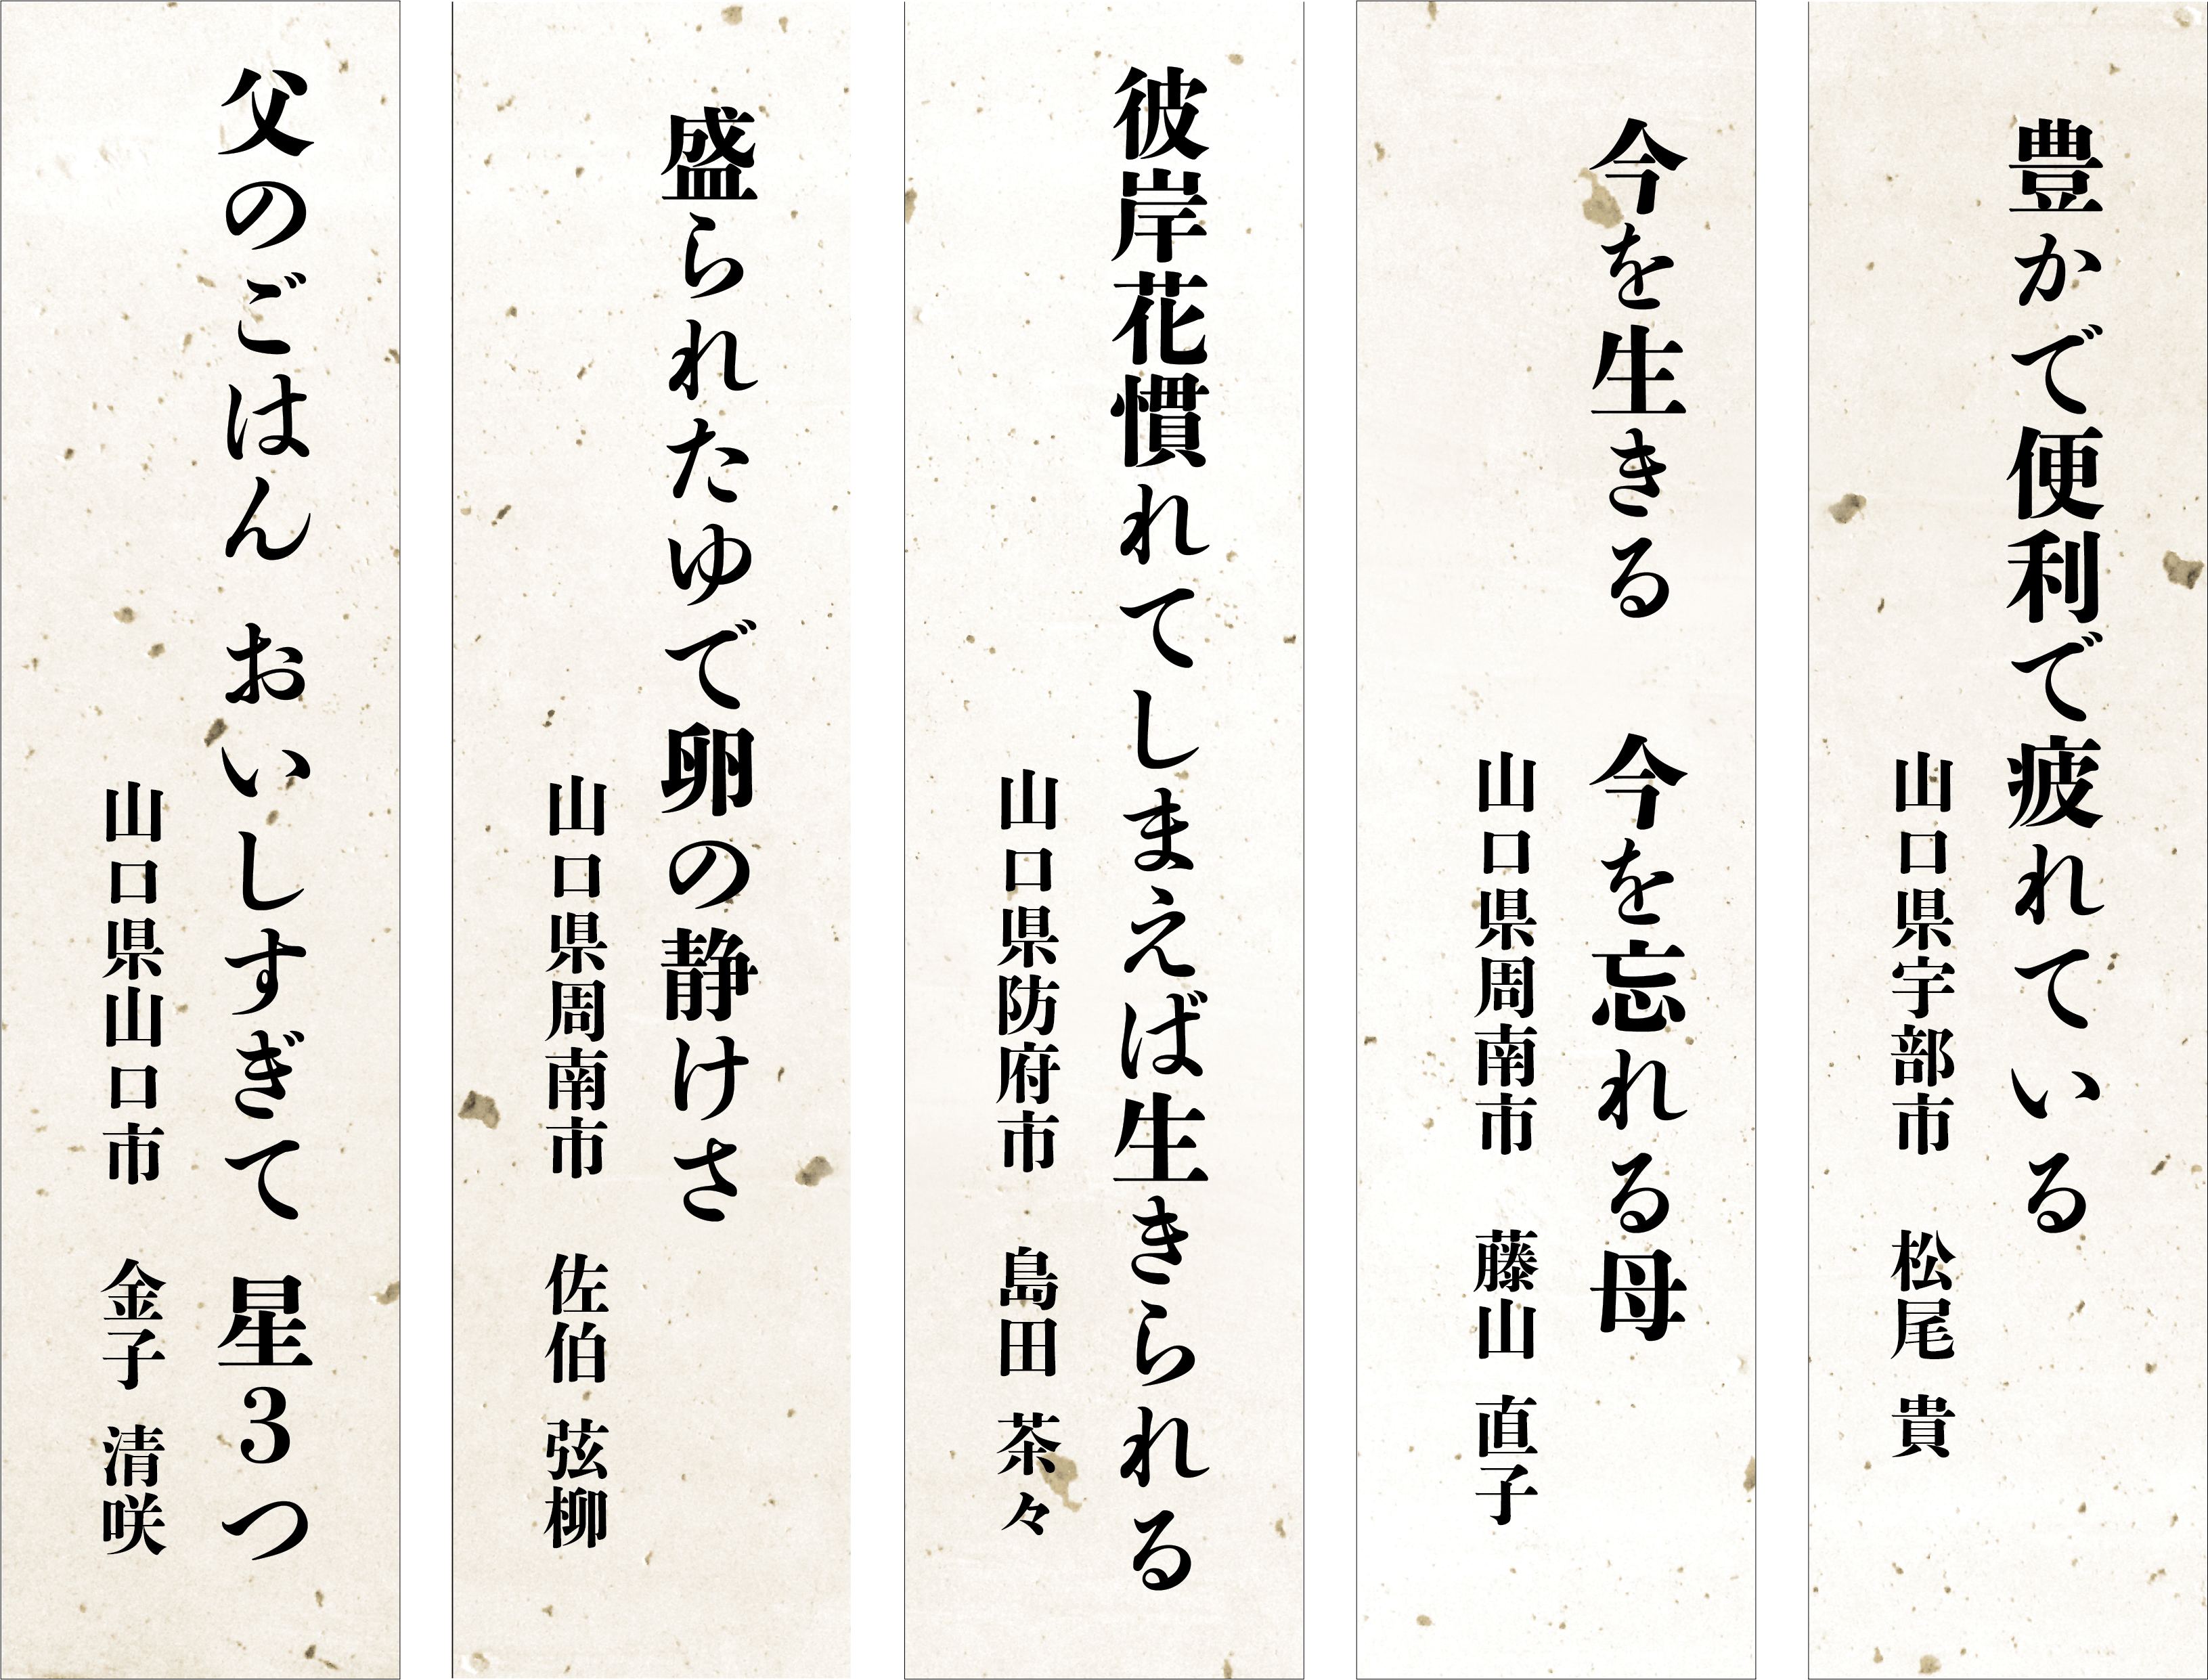 豊かで便利で疲れている
山口県宇部市　松尾 貴
今を生きる　今を忘れる母
山口県周南市　藤山 直子
彼岸花慣れてしまえば生きられる
山口県防府市　島田 茶々
盛られたゆで卵の静けさ
山口県周南市　佐伯 弦柳
父のごはん おいしすぎて 星3つ
山口県山口市　金子 清咲